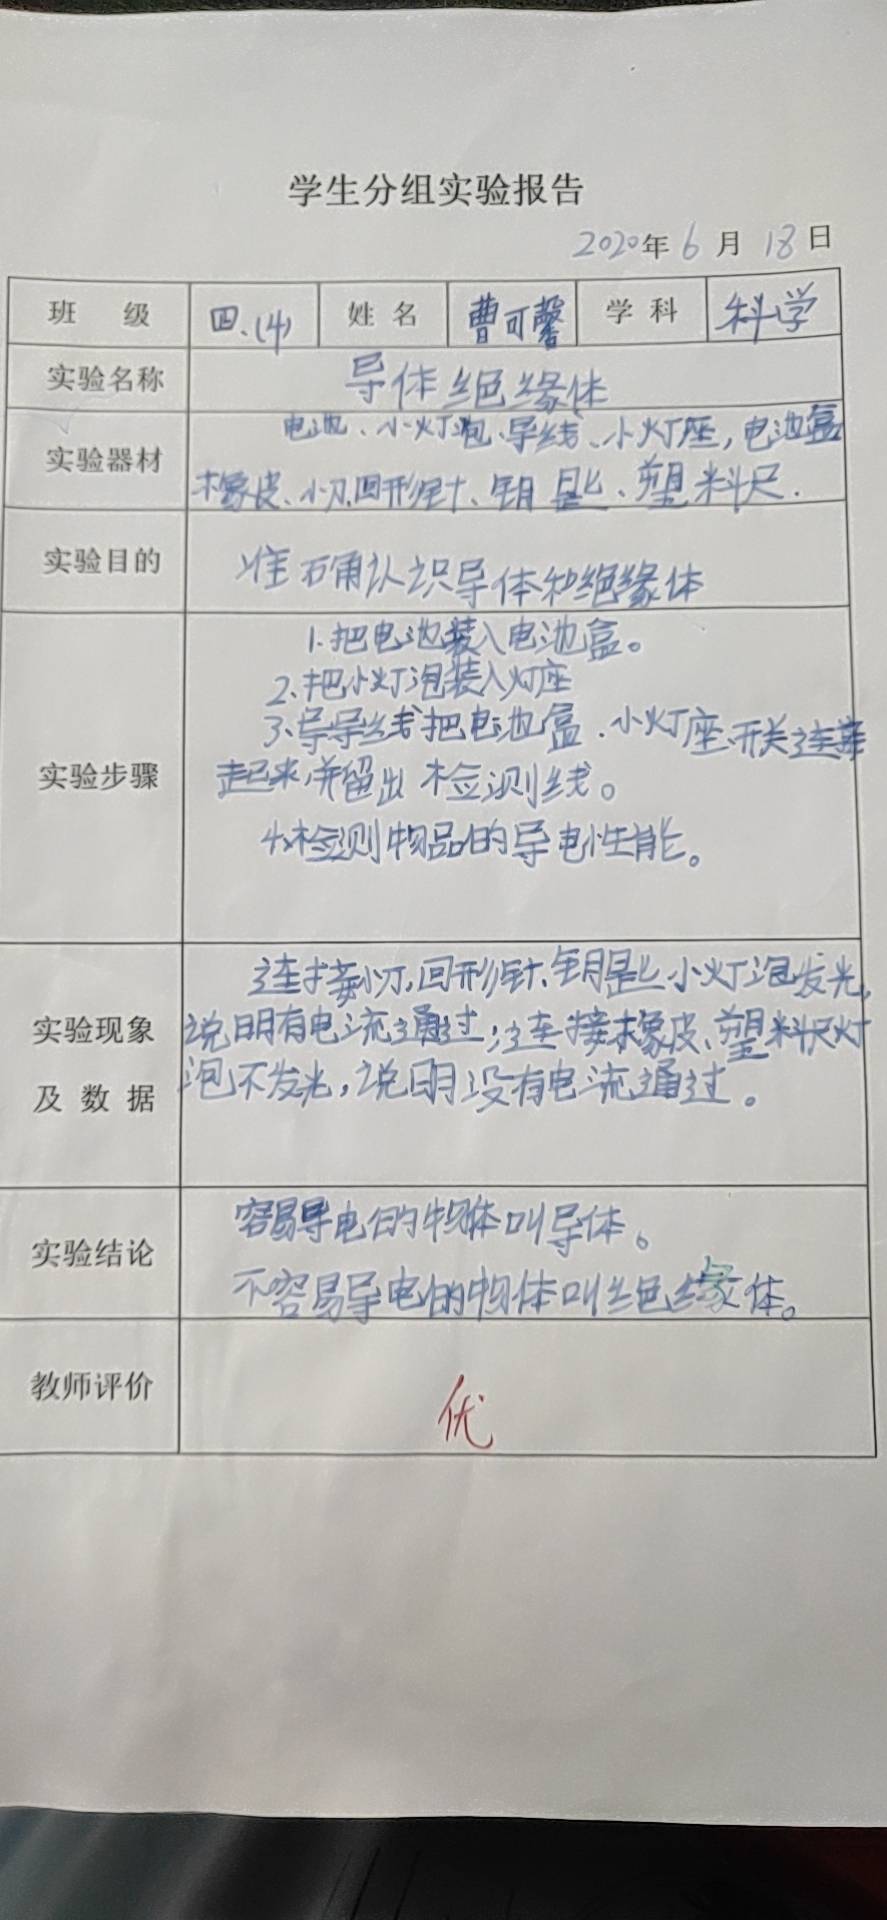 学生分组实验报告
2020年6月18日
班 级 四.(4) 姓名 曹可馨 学科 科学
实验名称 导体绝缘体
实验器材 电池、小灯泡、导线、小灯座,电池盒
橡皮、小刀、回形针、钥匙、塑料尺.
实验目的 准确认识导体和绝缘体
实验步骤
1.把电池装入电池盒。
2.把小灯泡装入灯座
3.导导线把电池盒、小灯座、开关连接
起来,并留出检测线。
4.检测物品的导电性能。
实验现象
及数据
连接小刀,回形针、钥匙小灯泡发光,
说明有电流通过;连接橡皮、塑料尺灯
泡不发光,说明没有电流通过。
实验结论
容易导电的物体叫导体。
不容易导电的物体叫绝缘体。
教师评价 优